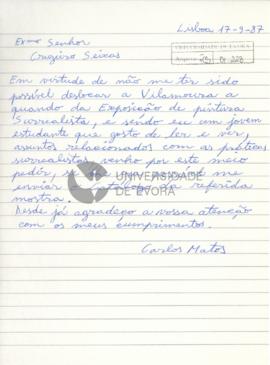 Lisboa 17-9-87
Exmo Senhor
Cruzeiro Seixas
UNIVERSIDADE DE ÉVORA
Em virtude de não me ter sido
possível deslocar a Vilamoura a
quando da Exposição de pintura
Surrealista, e sendo eu um jovem
estudante que gosto de ler e ver,
assuntos relacionados com as práticas
surrealistas venho por este meio
pedir, se
enviar o Catálogo da referida
mostra.
Desde já agradeço a vossa atenção
com os meus cumprimentos.
Carlos Matos
UNIVERSIDADE
DE ÉVORA